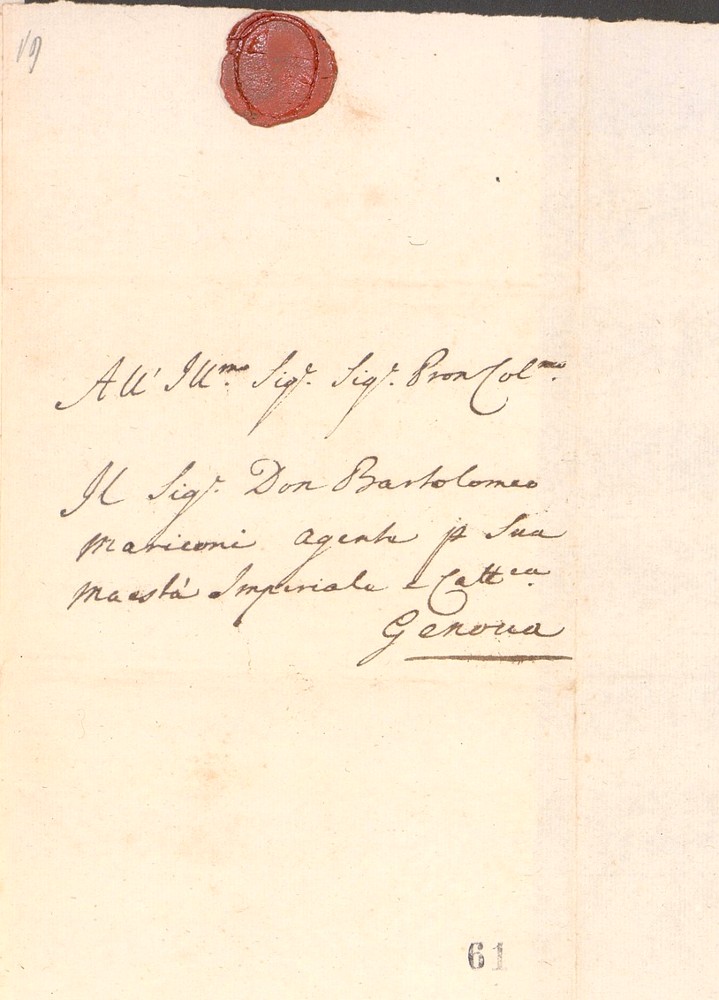 19
All' Ill.mo Sig.r Sig.r Pron Col.mo
Il Sig.r Don Bartolomeo
Mariconi Agente p Sua
Maestà Imperiale e Catt.ca
Genova
61